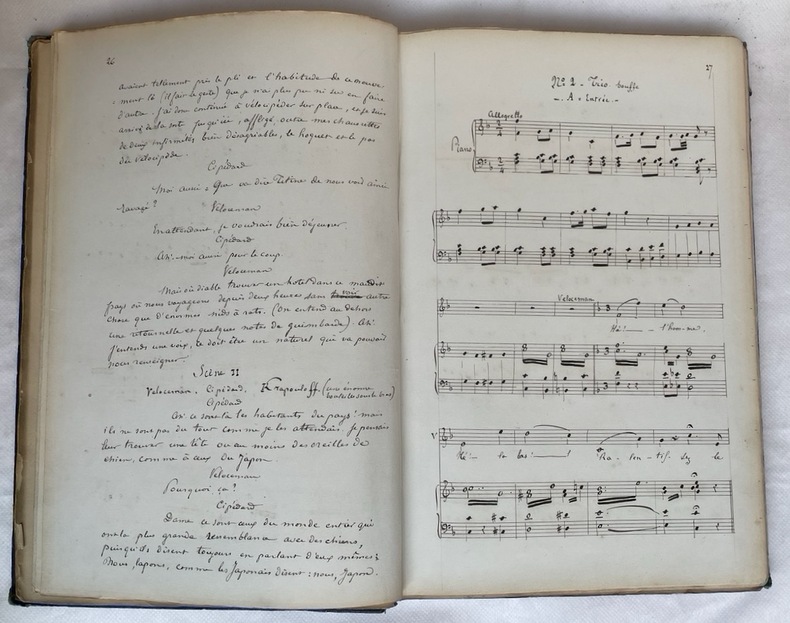 26
avaient tellement pris le pli et l'habitude de ce mouve
ment là (il fait le geste) que je n'ai plus pu ni su en faire
d'autre. J'ai donc continué à vélocipéder sur place, et je suis
arrivé de la sorte, affligé, outre mes chaussettes
de deux infirmités bien désagréables, le hoquet et le pas
du vélocipède.
Cipédard
Moi aussi. Que va dire Titine de nous voir ainsi
ravagé?
Veloceman
En attendant, je voudrais bien déjeuner.
Cipédard
Ah! moi aussi pour le coup.
Veloceman
Mais où diable trouver un hôtel dans ce maudit
pays où nous voyageons depuis deux heures sans autre
chose que d'énormes nids à rats. (On entend au dehors
une ritournelle et quelques notes de guimbarde). Ah!
j'entends une voix, ce doit être un naturel qui va pouvoir
nous renseigner.
Scène II
Veloceman, Cipédard, Krapouloff (une énorme
sous le bras)
Cipédard
Ah! ce sont là les habitants du pays! mais
ils ne sont pas du tout comme je les attendais. Je pensais
leur trouver une tête ou au moins des oreilles de
chien, comme à ceux du Japon.
Veloceman
Pourquoi ça?
Cipédard
Dame ce sont ceux du monde entier qui
ont la plus grande ressemblance avec des chiens,
puisqu'ils disent toujours en parlant d'eux mêmes:
Nous, lapons, comme les Japonais disent: nous, Japon.
27
No 2 - Trio bouffe
- A. Entrée -
Allegretto
Piano
Veloceman
Hé! l'hom-me.
V
Hé! là bas! Ra-len-tis-sez le